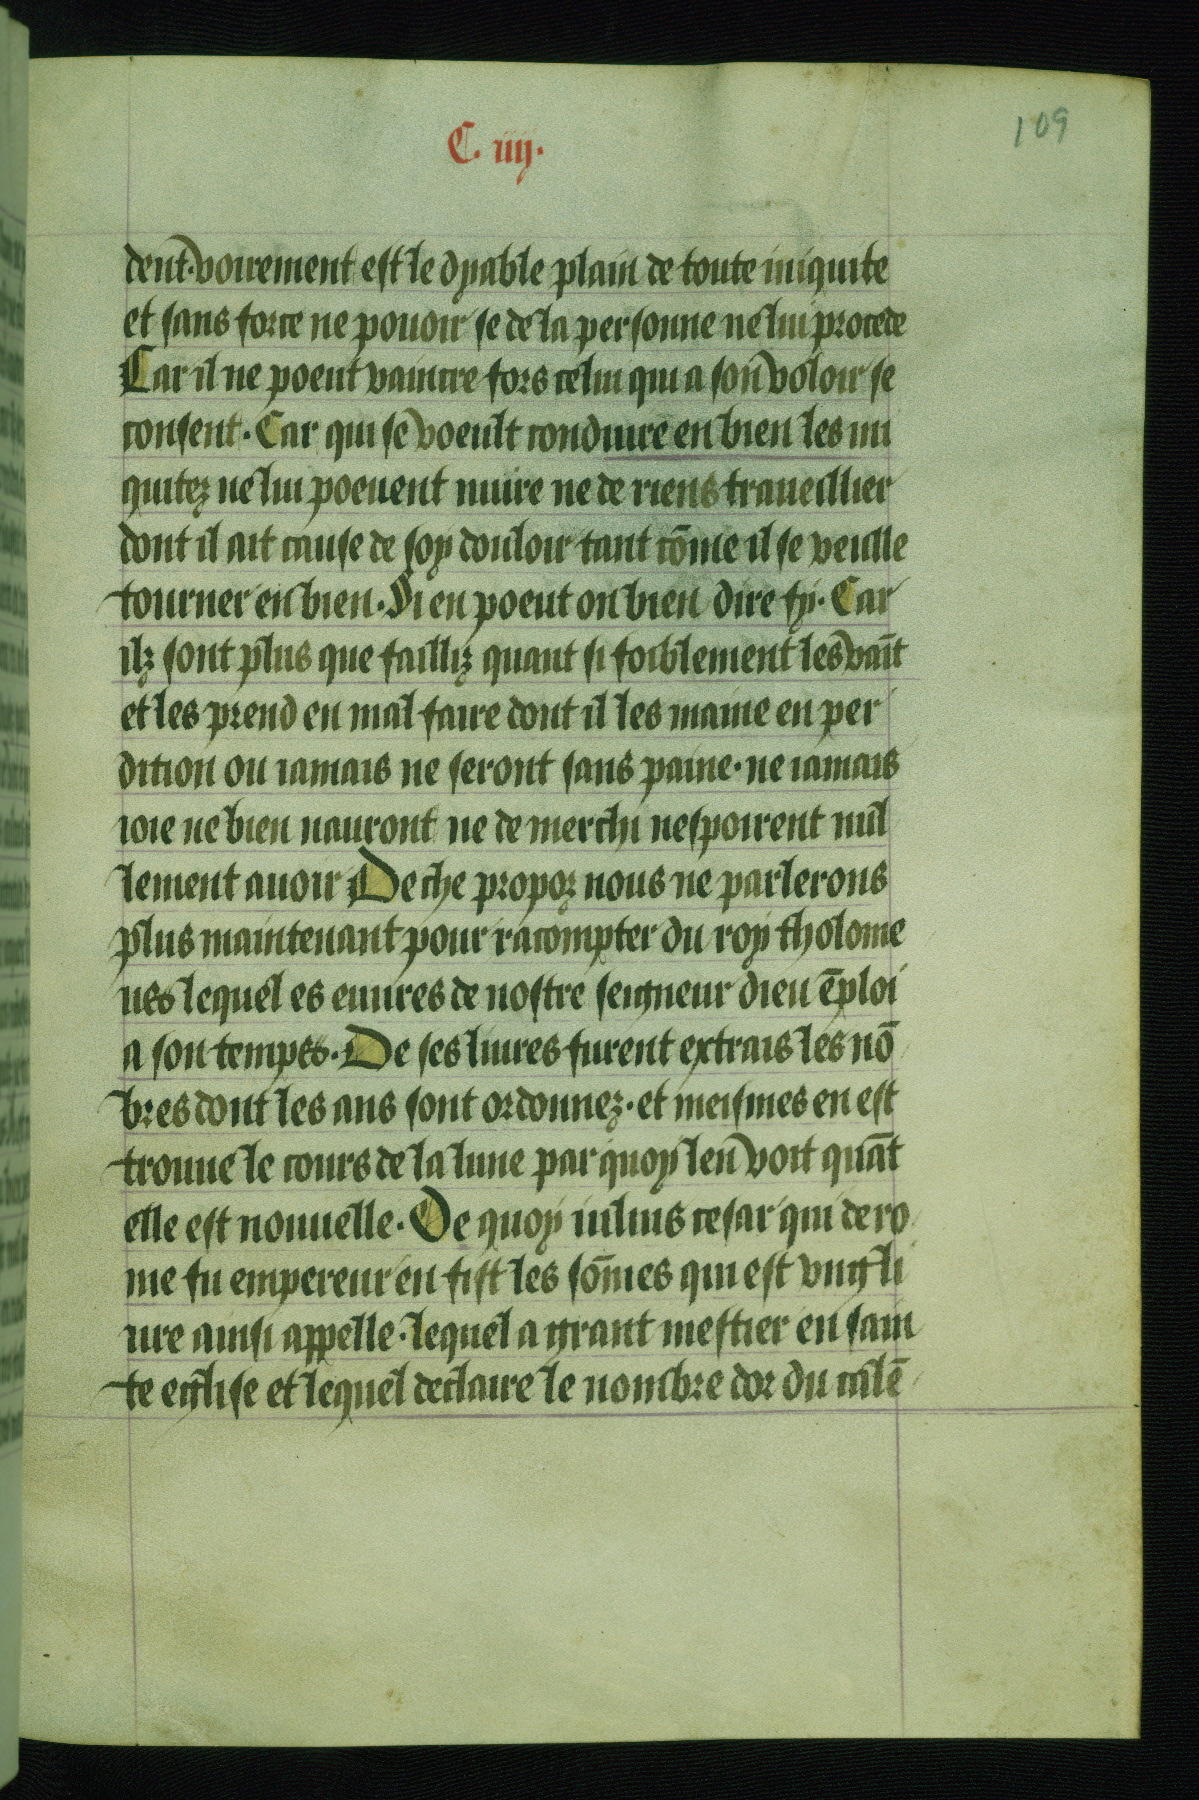 C. iiij.
109
dent. voirement est le dyable plain de toute iniquite
et sans force ne pouoir se de la personne ne lui procede
Car il ne poeut vaincre fors celui qui a son voloir se
consent. Car qui se voeult conduire en bien les ini
quitez ne lui poeuent nuire ne de riens traueillier
dont il ait cause de soy douloir tant cōme il se veulle
tourner en bien. Si en poeut on bien dire fy. Car
ilz sont plus que failliz quant si foiblement les vaīt
et les prend en mal faire dont il les maine en per
dition ou iamais ne seront sans paine. ne iamais
ioie ne bien nauront ne de merchi nespoirent nul
lement auoir De che propoz nous ne parlerons
plus maintenant pour racompter du roy tholome
us lequel es euures de nostre seigneur dieu ēploi
a son temps. De ses liures furent extrais les nō
bres dont les ans sont ordonnez. et meismes en est
trouue le cours de la lune par quoy len voit quāt
elle est nouuelle. De quoy iulius cesar qui de ro
me fu empereur en fist les sōmes qui est vng li
ure ainsi appelle. lequel a grant mestier en sain
te eglise et lequel declaire le nombre dor du calē